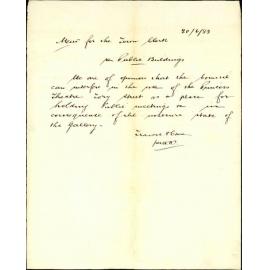 20/6/93
Memo for the Town Clerk
re Public Buildings
We are of opinion that the Council
can interfere in the use of the Princess
Theatre Tory Street as a place for
holding Public meetings in
consequence of the insecure state of
the Gallery.